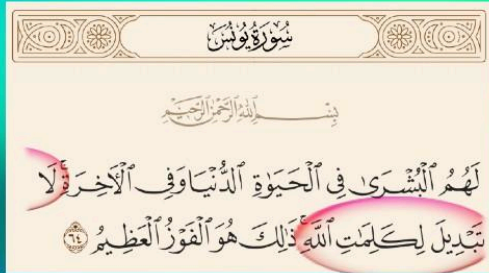 سُورَةُ يُونُسَ
بِسْمِ اللَّهِ الرَّحْمَٰنِ الرَّحِيمِ
لَهُمُ الْبُشْرَىٰ فِي الْحَيَوٰةِ الدُّنْيَا وَفِي الْآخِرَةِ ۚ لَا
تَبْدِيلَ لِكَلِمَٰتِ اللَّهِ ۚ ذَٰلِكَ هُوَ الْفَوْزُ الْعَظِيمُ ٦٤